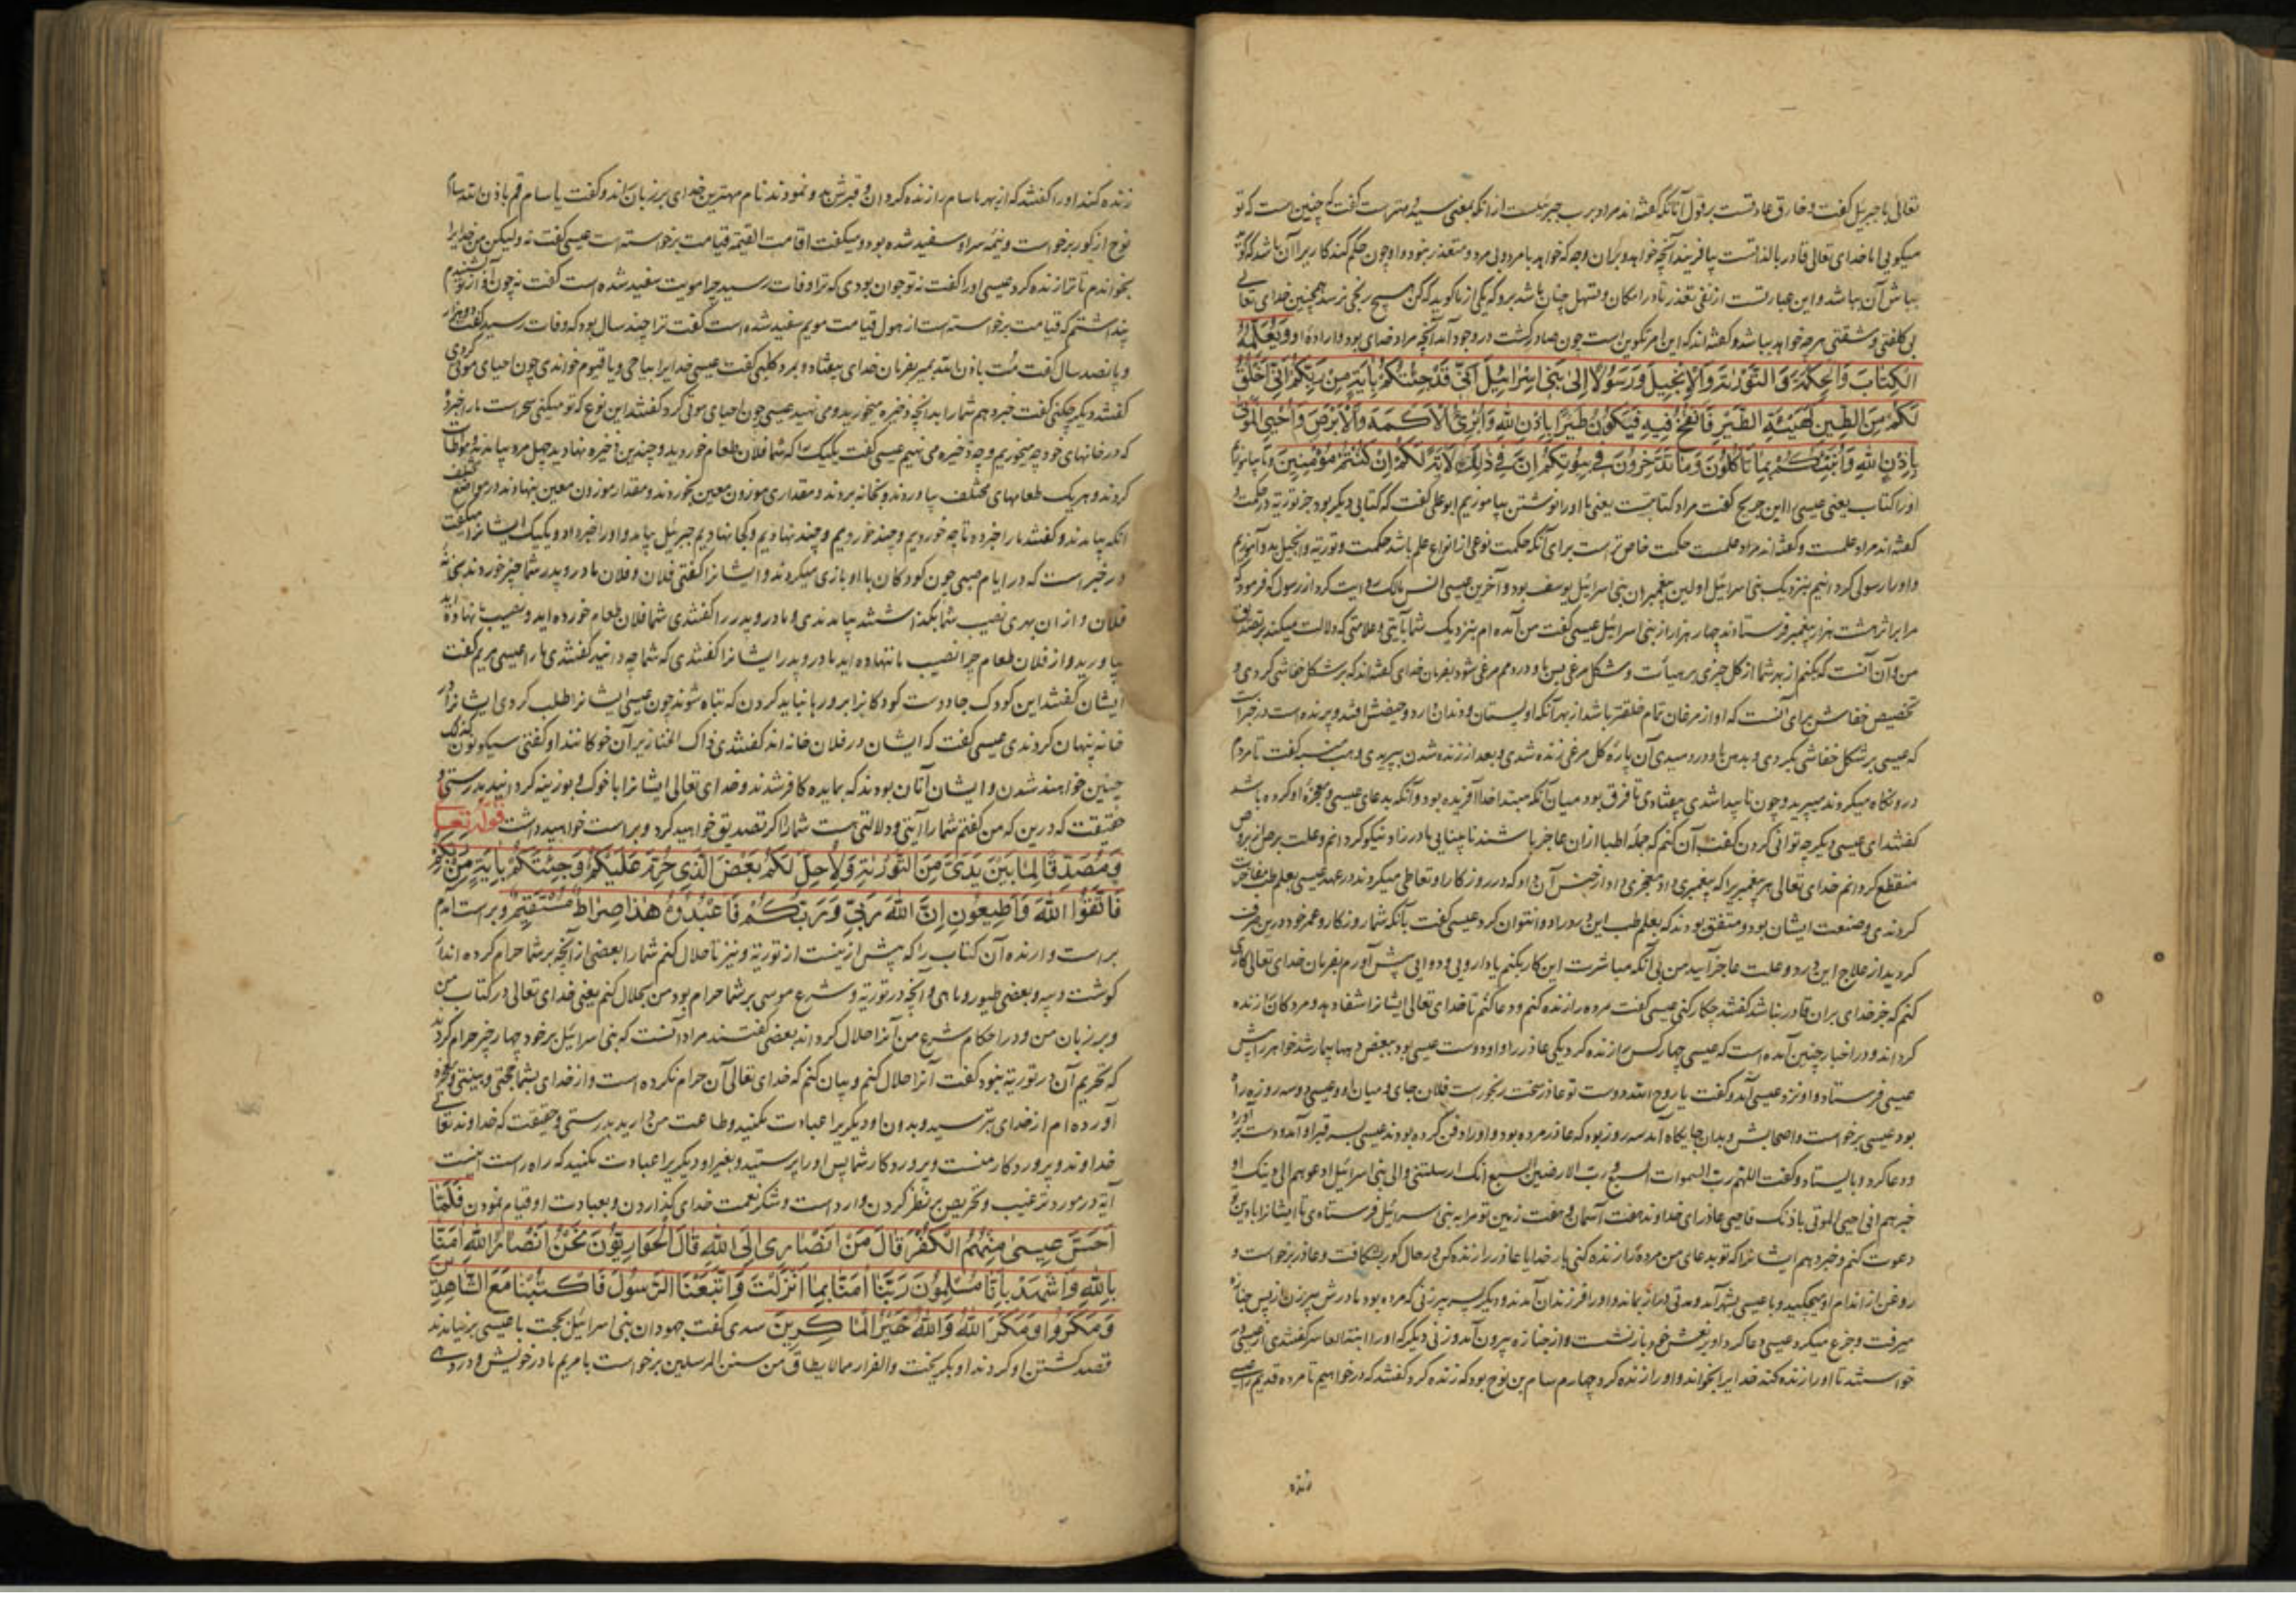 تعالی با جبرئیل گفت و خارق عادتست بر قول آنانکه گفته‌اند مراد برب جبرئیلست از آنکه بمعنی سید و مهترست گفت که چنین است که تو
میگویی اما خدای تعالی قادر بالذاتست بیافریند آنچه خواهد و بران وجه که خواهد با مرد و بی مرد و متعذر نبود و او چون حکم کند کاریرا آن باشد که گوید
بباش آن بباشد و این عبارتست از نفی تعذر
بی کلفتی و مشقتی هرچه خواهد بباشد و گفته‌اند که این امر تکوین است چون صادر گشت در وجود آید آنچه مراد خدای بود و اراده او وَيُعَلِّمُهُ
الْكِتَابَ وَالْحِكْمَةَ وَالتَّوْرٰىةَ وَالْإِنْجِيلَ وَرَسُولًا إِلىٰ بَنِي إِسْرَائِيلَ أَنِّي قَدْ جِئْتُكُمْ بِآيَةٍ مِنْ رَبِّكُمْ أَنِّي أَخْلُقُ
لَكُمْ مِنَ الطِّينِ كَهَيْئَةِ الطَّيْرِ فَأَنْفُخُ فِيهِ فَيَكُونُ طَيْرًا بِإِذْنِ اللهِ وَأُبْرِئُ الْأَكْمَهَ وَالْأَبْرَصَ وَأُحْيِي الْمَوْتىٰ
بِإِذْنِ اللهِ وَأُنَبِّئُكُمْ بِمَا تَأْكُلُونَ وَمَا تَدَّخِرُونَ فِي بُيُوتِكُمْ إِنَّ فِي ذٰلِكَ لَآيَةً لَكُمْ إِنْ كُنْتُمْ مُؤْمِنِينَ و تا بیاموزد
او را کتاب یعنی عیسی را ابن جریج گفت مراد کتابتست یعنی ما او را نوشتن بیاموزیم ابوعلی گفت که کتابی دیگر بود جز توریة در حکمت و
گفته‌اند مراد علمست و گفته‌اند مراد علمست حکمت خاص ترست برای آنکه حکمت نوعی از انواع علم باشد حکمت و توریة و انجیل بدو آموزیم
و او را رسولی گردانیم بنزدیک بنی اسرائیل اولین پیغمبران بنی اسرائیل یوسف بود و آخرین عیسی انس مالک روایت کرد از رسول که فرمود که
مرا بر اثر هشت هزار پیغمبر فرستادند چهار هزار از بنی اسرائیل عیسی گفت من آمده‌ام بنزدیک شما بآیتی و علامتی که دلالت میکند بر تصدیق
من و آن آنست که بکنم از بهر شما از گل چیزی بر هیأت و شکل مرغی پس باد در دمم مرغی شود بفرمان خدای گفته‌اند که بر شکل خفاشی کردی و
تخصیص خفاش برای آنست که او از مرغان تمام خلقتر باشد از بهر آنکه او پستان و دندان دارد و حیضش افتد و پرنده است در خبرست
که عیسی بر شکل خفاشی بکردی و بدهن باد در دمیدی آن پاره گل مرغی زنده شدی و بعد از زنده شدن بپریدی وهب منبه گفت تا مردم
درو نگاه میکردند میپرید و چون ناپیدا شدی بیفتادی تا فرق بود میان آنکه مبتدا خدا آفریده بود و آنکه بدعای عیسی و معجزه او کرده باشد
گفتند ای عیسی دیگر چه توانی کردن گفت آن کنم که جمله اطبا از ان عاجز باشند نابینایی مادرزاد نیکو گردانم و علت برص از بروص
منقطع گردانم خدای تعالی هر پیغمبریرا که پیغمبری داد معجزی داد از جنس آن داد که در روزگار او تعاطی میکردند در عهد عیسی بعلم طب مفاخرت
کردندی و صنعت ایشان بود و متفق بودند که بعلم طب این دو را دوا نتوان کرد عیسی گفت بآنکه شما روزگار و عمر خود درین صرف
کردید از علاج این درد و علت عاجز آیید من بی آنکه مباشرت این کار بکنم یا دارویی و دوایی پیش آورم بفرمان خدای تعالی کاری
کنم که جز خدای بران قادر نباشد گفتند چکار کنی عیسی گفت مرده را زنده کنم و دعا کنم تا خدای تعالی ایشانرا شفا دهد و مردگان زنده
گرداند و در اخبار چنین آمده است که عیسی چهار کس را زنده کرد یکی عاذر را و او دوست عیسی بود
عیسی فرستاد و او نزد عیسی آمد و گفت یا روح الله دوست تو عاذر سخت رنجورست فلان جای و میان او و عیسی دو سه روزه راه
بود عیسی برخواست و اصحابش و بدان جایگاه آمد سه روز بود که عاذر مرده بود و او را دفن کرده بودند عیسی بسر قبر او آمد و دست برآورد
و دعا کرد و بایستاد و گفت اللهم رب السموات السبع و رب الارضین السبع انک ارسلتنی الی بنی اسرائیل ادعوهم الی دینک و
خبرهم انی احیی الموتی باذنک فاحیی عاذر ای خداوند هفت آسمان و هفت زمین تو مرا به بنی سرائیل فرستادی تا ایشانرا بادین تو
دعوت کنم و خبر دهم ایشانرا که تو بدعای من مرده را زنده کنی بار خدایا عاذر را زنده کن در حال گور بشکافت و عاذر برخواست و
روغن از اندام او میچکید و با عیسی بشهر آمد و مدتی دراز بماند و او را فرزندان آمدند و دیگر پسر پیرزنی که مرده بود مادرش پیرزن از پس جنازه
میرفت و جزع میکرد عیسی دعا کرد او بر نعش خود بازنشست و از جنازه بیرون آمد و زنی دیگر که او را ابنة العاشر گفتندی از عیسی در
خواستند تا او را زنده کند خدایرا بخواند و او را زنده کرد و چهارم سام بن نوح بود که زنده کرد گفتند که درخواهیم تا مرده قدیم را
زنده
زنده کند او را گفتند که از بهر ما سام را زنده کرد ان و قبرش بدو نمودند نام مهترین خدای بر زبان راند و گفت یا سام قم باذن الله سام
نوح از گور برخواست و نیمه سر او سفید شده بود و میگفت اقامت القیمة قیامت برخواسته است عیسی گفت نه ولیکن من خدایرا
بخواندم تا ترا زنده کرد عیسی او را گفت نه تو جوان بودی که ترا وفات رسید چرا مویت سفید شده است گفت نه چون آواز تو شنیدم
پنداشتم که قیامت برخواسته است از هول قیامت مویم سفید شده است گفت ترا چند سال بود که وفات رسید گفت دو هزار
و پانصد سال گفت مت باذن الله بمیر بفرمان خدای بیفتاد و بمرد کلبی گفت عیسی خدایرا بیا حی و یا قیوم خواندی چون احیای موتی کردی
گفتند دیگر چکنی گفت خبر دهم شما را بدانچه ذخیره میخورید و می نهید عیسی چون احیای موتی کرد گفتند این نوع که تو میکنی سحرست ما را خبر ده
که در خانهای خود چه میخوریم و چه ذخیره می نهیم عیسی گفت یکیک را که شما فلان طعام خوردید و چندین ذخیره نهادید چهل مرد بیامدند و مواطات
کردند و هر یک طعامهای مختلف بیاوردند و بخانه بردند و مقداری موزون معین بخوردند و مقدار موزون معین بنهادند در مواضع مختلف
آنگه بیامدند و گفتند ما را خبر ده تا چه خوردیم و چند خوردیم و چند نهادیم و کجا نهادیم جبرئیل بیامد و او را خبر داد و یکیک ایشانرا میگفت
در خبر است که در ایام صبی چون کودکان با او بازی میکردند و ایشانرا گفتی فلان و فلان مادر و پدر شما چیز خوردند بخانه
فلان و از ان بهری نصیب شما بگذاشتند بیامدندی و مادر و پدر را گفتندی شما فلان طعام خورده‌اید و نصیب ما نهاده‌اید
بیاورید و از فلان طعام چرا نصیب ما ننهاده‌اید مادر و پدر ایشانرا گفتندی که شما چه دانید گفتندی ما را عیسی مریم گفت
ایشان گفتند این کودک جادوست کودکانرا برو رها نباید کردن که تباه شوند چون عیسی ایشانرا طلب کردی ایشانرا در
خانه پنهان کردندی عیسی گفت که ایشان در فلان خانه‌اند گفتندی ذاک الخنازیر آن خوکانند او گفتی سیکونون کذلک
چنین خواهند شدن و ایشان آنان بودند که بمایده کافر شدند و خدای تعالی ایشانرا با خوک و بوزینه گردانید بدرستی و
حقیقت که درین که من گفتم شما را آیتی و دلالتی هست شما را اگر تصدیق خواهید کرد و براست خواهید داشت قوله تعالی
وَمُصَدِّقًا لِمَا بَيْنَ يَدَيَّ مِنَ التَّوْرٰىةِ وَلِأُحِلَّ لَكُمْ بَعْضَ الَّذِي حُرِّمَ عَلَيْكُمْ وَجِئْتُكُمْ بِآيَةٍ مِنْ رَبِّكُمْ
فَاتَّقُوا اللهَ وَأَطِيعُونِ إِنَّ اللهَ رَبِّي وَرَبُّكُمْ فَاعْبُدُوهُ هٰذَا صِرَاطٌ مُسْتَقِيمٌ و براست آمدم
براست دارنده آن کتاب را که پیش ازینست از توریة و نیز تا حلال کنم شما را بعضی از آنچه بر شما حرام کرده‌اند از
گوشت و پیه و بعضی طیور و ماهی و آنچه در توریة و شرع موسی بر شما حرام بود من بحلال کنم یعنی خدای تعالی در کتاب من
و بر زبان من و در احکام شرع من آنرا حلال گرداند بعضی گفتند مراد آنست که بنی اسرائیل بر خود چهار چیز حرام کردند
که تحریم آن در توریة نبود گفت آنرا حلال کنم و بیان کنم که خدای تعالی آن حرام نکرده است و از خدای بشما حجتی و بینتی و معجزه
آورده‌ام از خدای بترسید و بدون او دیگریرا عبادت مکنید و طاعت من دارید بدرستی و حقیقت که خداوند تعالی
خداوند و پروردگار منست و پروردگار شما پس او را پرستید و بغیر او دیگریرا عبادت مکنید که راه راست اینست
آیه در مورد ترغیب و تحریص بر نظر کردن وارد است و شکر نعمت خدای گذاردن و بعبادت او قیام نمودن فَلَمَّا
أَحَسَّ عِيسىٰ مِنْهُمُ الْكُفْرَ قَالَ مَنْ أَنْصَارِي إِلَى اللهِ قَالَ الْحَوَارِيُّونَ نَحْنُ أَنْصَارُ اللهِ آمَنَّا
بِاللهِ وَاشْهَدْ بِأَنَّا مُسْلِمُونَ رَبَّنَا آمَنَّا بِمَا أَنْزَلْتَ وَاتَّبَعْنَا الرَّسُولَ فَاكْتُبْنَا مَعَ الشَّاهِدِينَ
وَمَكَرُوا وَمَكَرَ اللهُ وَاللهُ خَيْرُ الْمَاكِرِينَ سدی گفت جهودان بنی اسرائیل بحجت با عیسی برنیامدند
قصد کشتن او کردند او بگریخت والفرار مما لا یطاق من سنن المرسلین برخواست با مریم مادر خویش و در